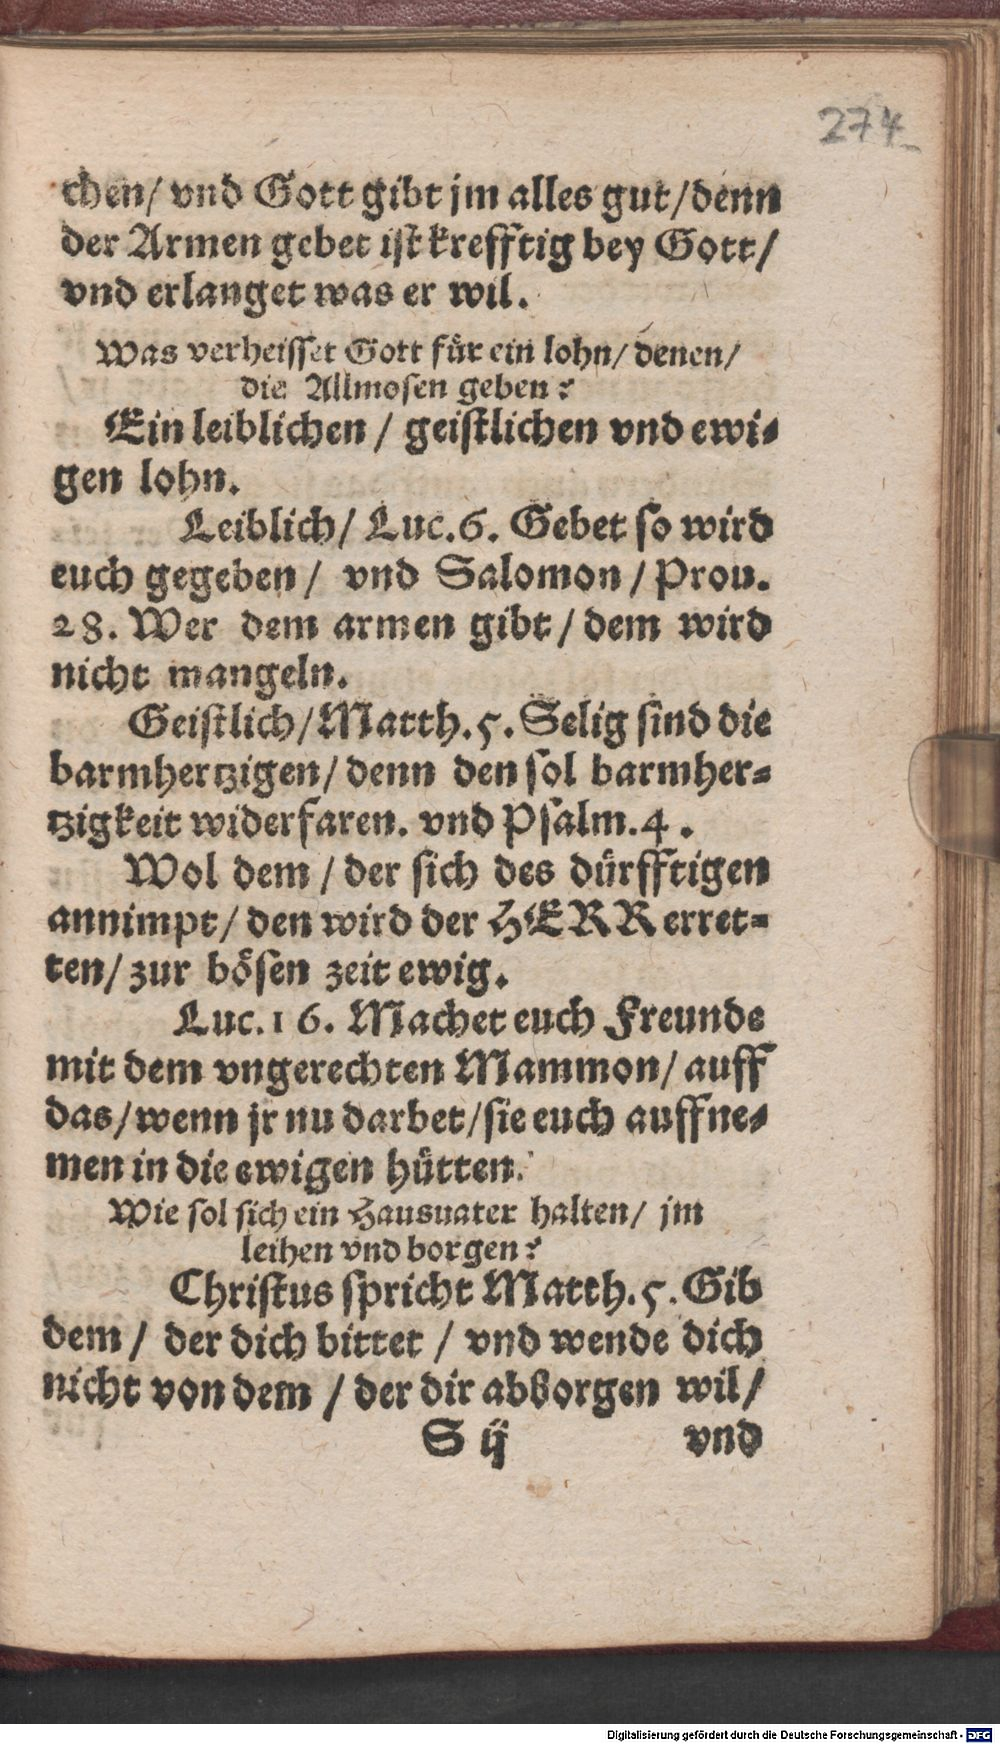 274
chen/ vnd Gott gibt jm alles gut/denn
der Armen gebet ist krefftig bey Gott/
vnd erlanget was er wil.
Was verheisset Gott für ein lohn/ denen/
die Allmosen geben?
Ein leiblichen / geistlichen vnd ewi-
gen lohn.
Leiblich/ Luc.6. Gebet so wird
euch gegeben/ vnd Salomon / Prou.
28. Wer dem armen gibt / dem wird
nicht mangeln.
Geistlich/Matth.5. Selig sind die
barmhertzigen/ denn den sol barmher-
tzigkeit widerfaren. vnd Psalm.4.
Wol dem / der sich des dürfftigen
annimpt/ den wird der HERR erret-
ten/ zur bösen zeit ewig.
Luc.16. Machet euch Freunde
mit dem vngerechten Mammon/ auff
das/ wenn jr nu darbet/sie euch auffne-
men in die ewigen hütten.
Wie sol sich ein Hausuater halten/ jm
leihen vnd borgen?
Christus spricht Matth.5. Gib
dem / der dich bittet / vnd wende dich
nicht von dem / der dir abborgen wil/
S ij vnd
Digitalisierung gefördert durch die Deutsche Forschungsgemeinschaft - DFG